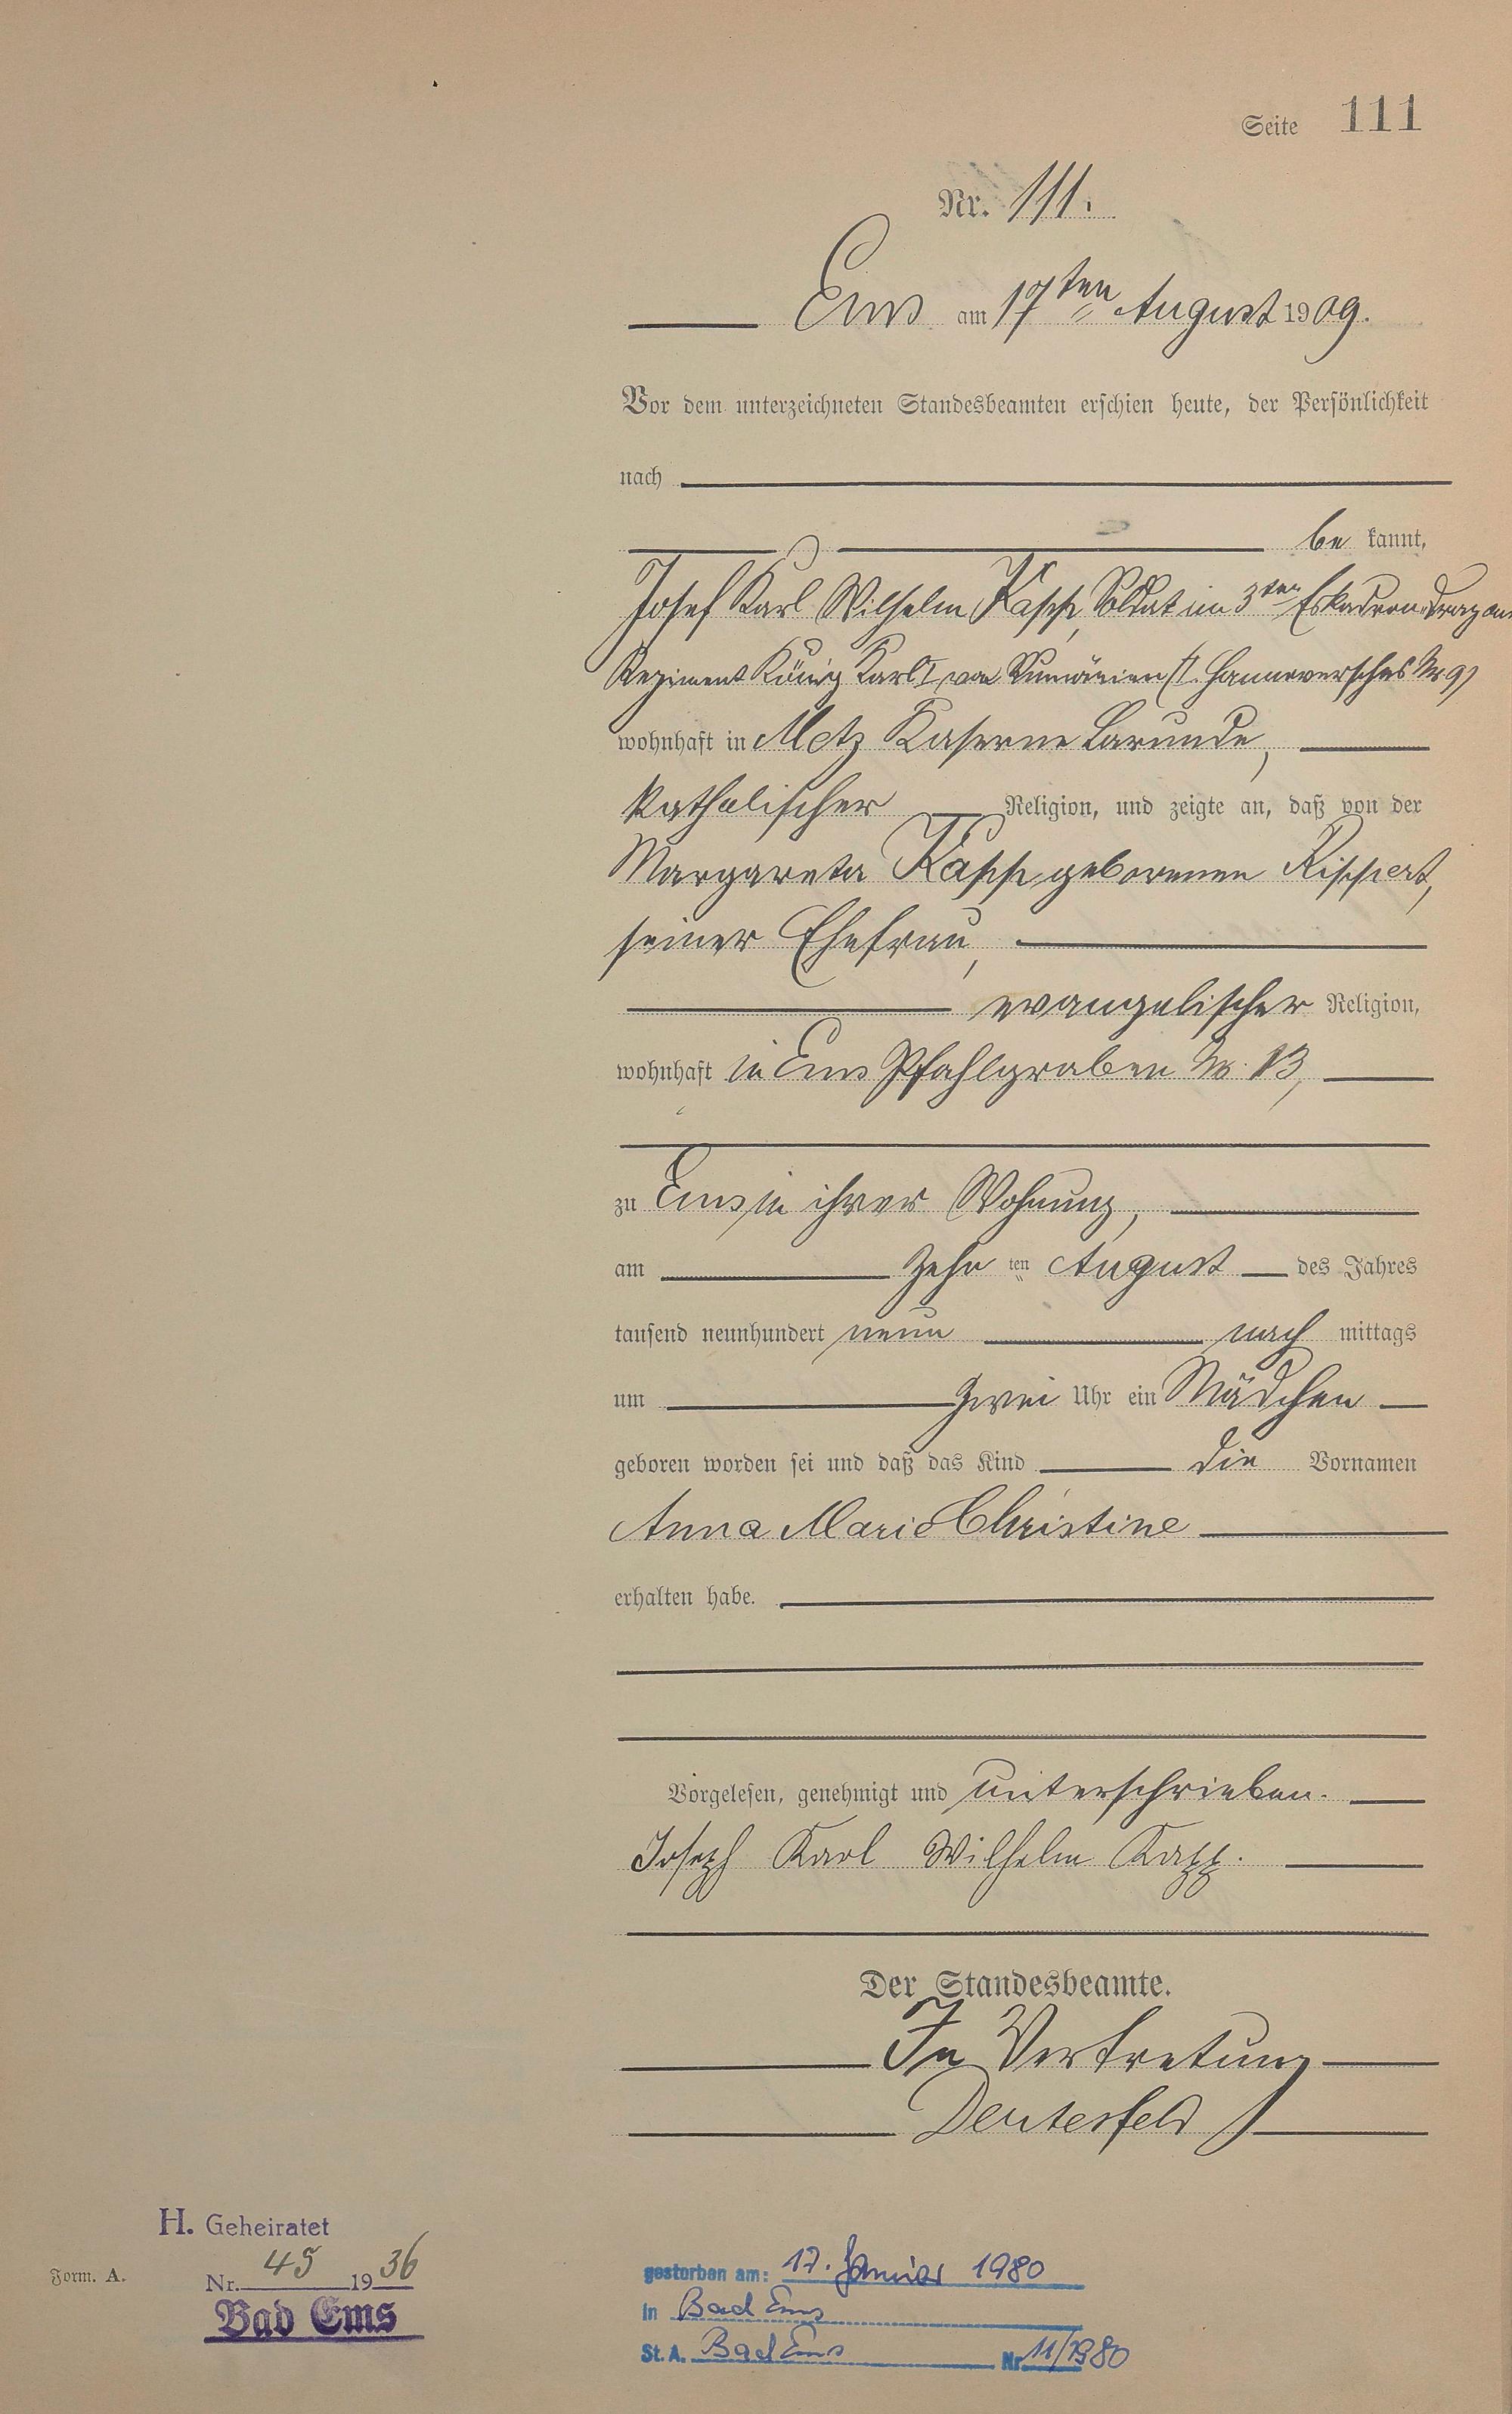 Seite 111
Nr. 111.
Ems am 17ten August 1909.
Vor dem unterzeichneten Standesbeamten erschien heute, der Persönlichkeit
nach
be kannt,
Josef Karl Wilhelm Kapp, Soldat im 3ten Eskadron Dragoner
Regiment König Karl I von Rumänien (I. Hannoversches Nr 9)
wohnhaft in Metz Kaserne
katholischer Religion, und zeigte an, daß von der
Margareta Kapp, geborenen Rippert,
seiner Ehefrau,
evangelischer Religion,
wohnhaft in Ems Pfahlgraben Nr. 13,
zu Ems in ihrer Wohnung,
am zehn ten August des Jahres
tausend neunhundert neun nach mittags
um zwei Uhr ein Mädchen
geboren worden sei und daß das Kind die Vornamen
Anna Maria Christine
erhalten habe.
Vorgelesen, genehmigt und unterschrieben.
Joseph Karl Wilhelm Kapp.
Der Standesbeamte.
In Vertretung
H. Geheiratet
Form. A.
Nr. 45 1936
Bad Ems
gestorben am: 17. Januar 1980
in Bad Ems
St. A. Bad Ems Nr. 11/1980